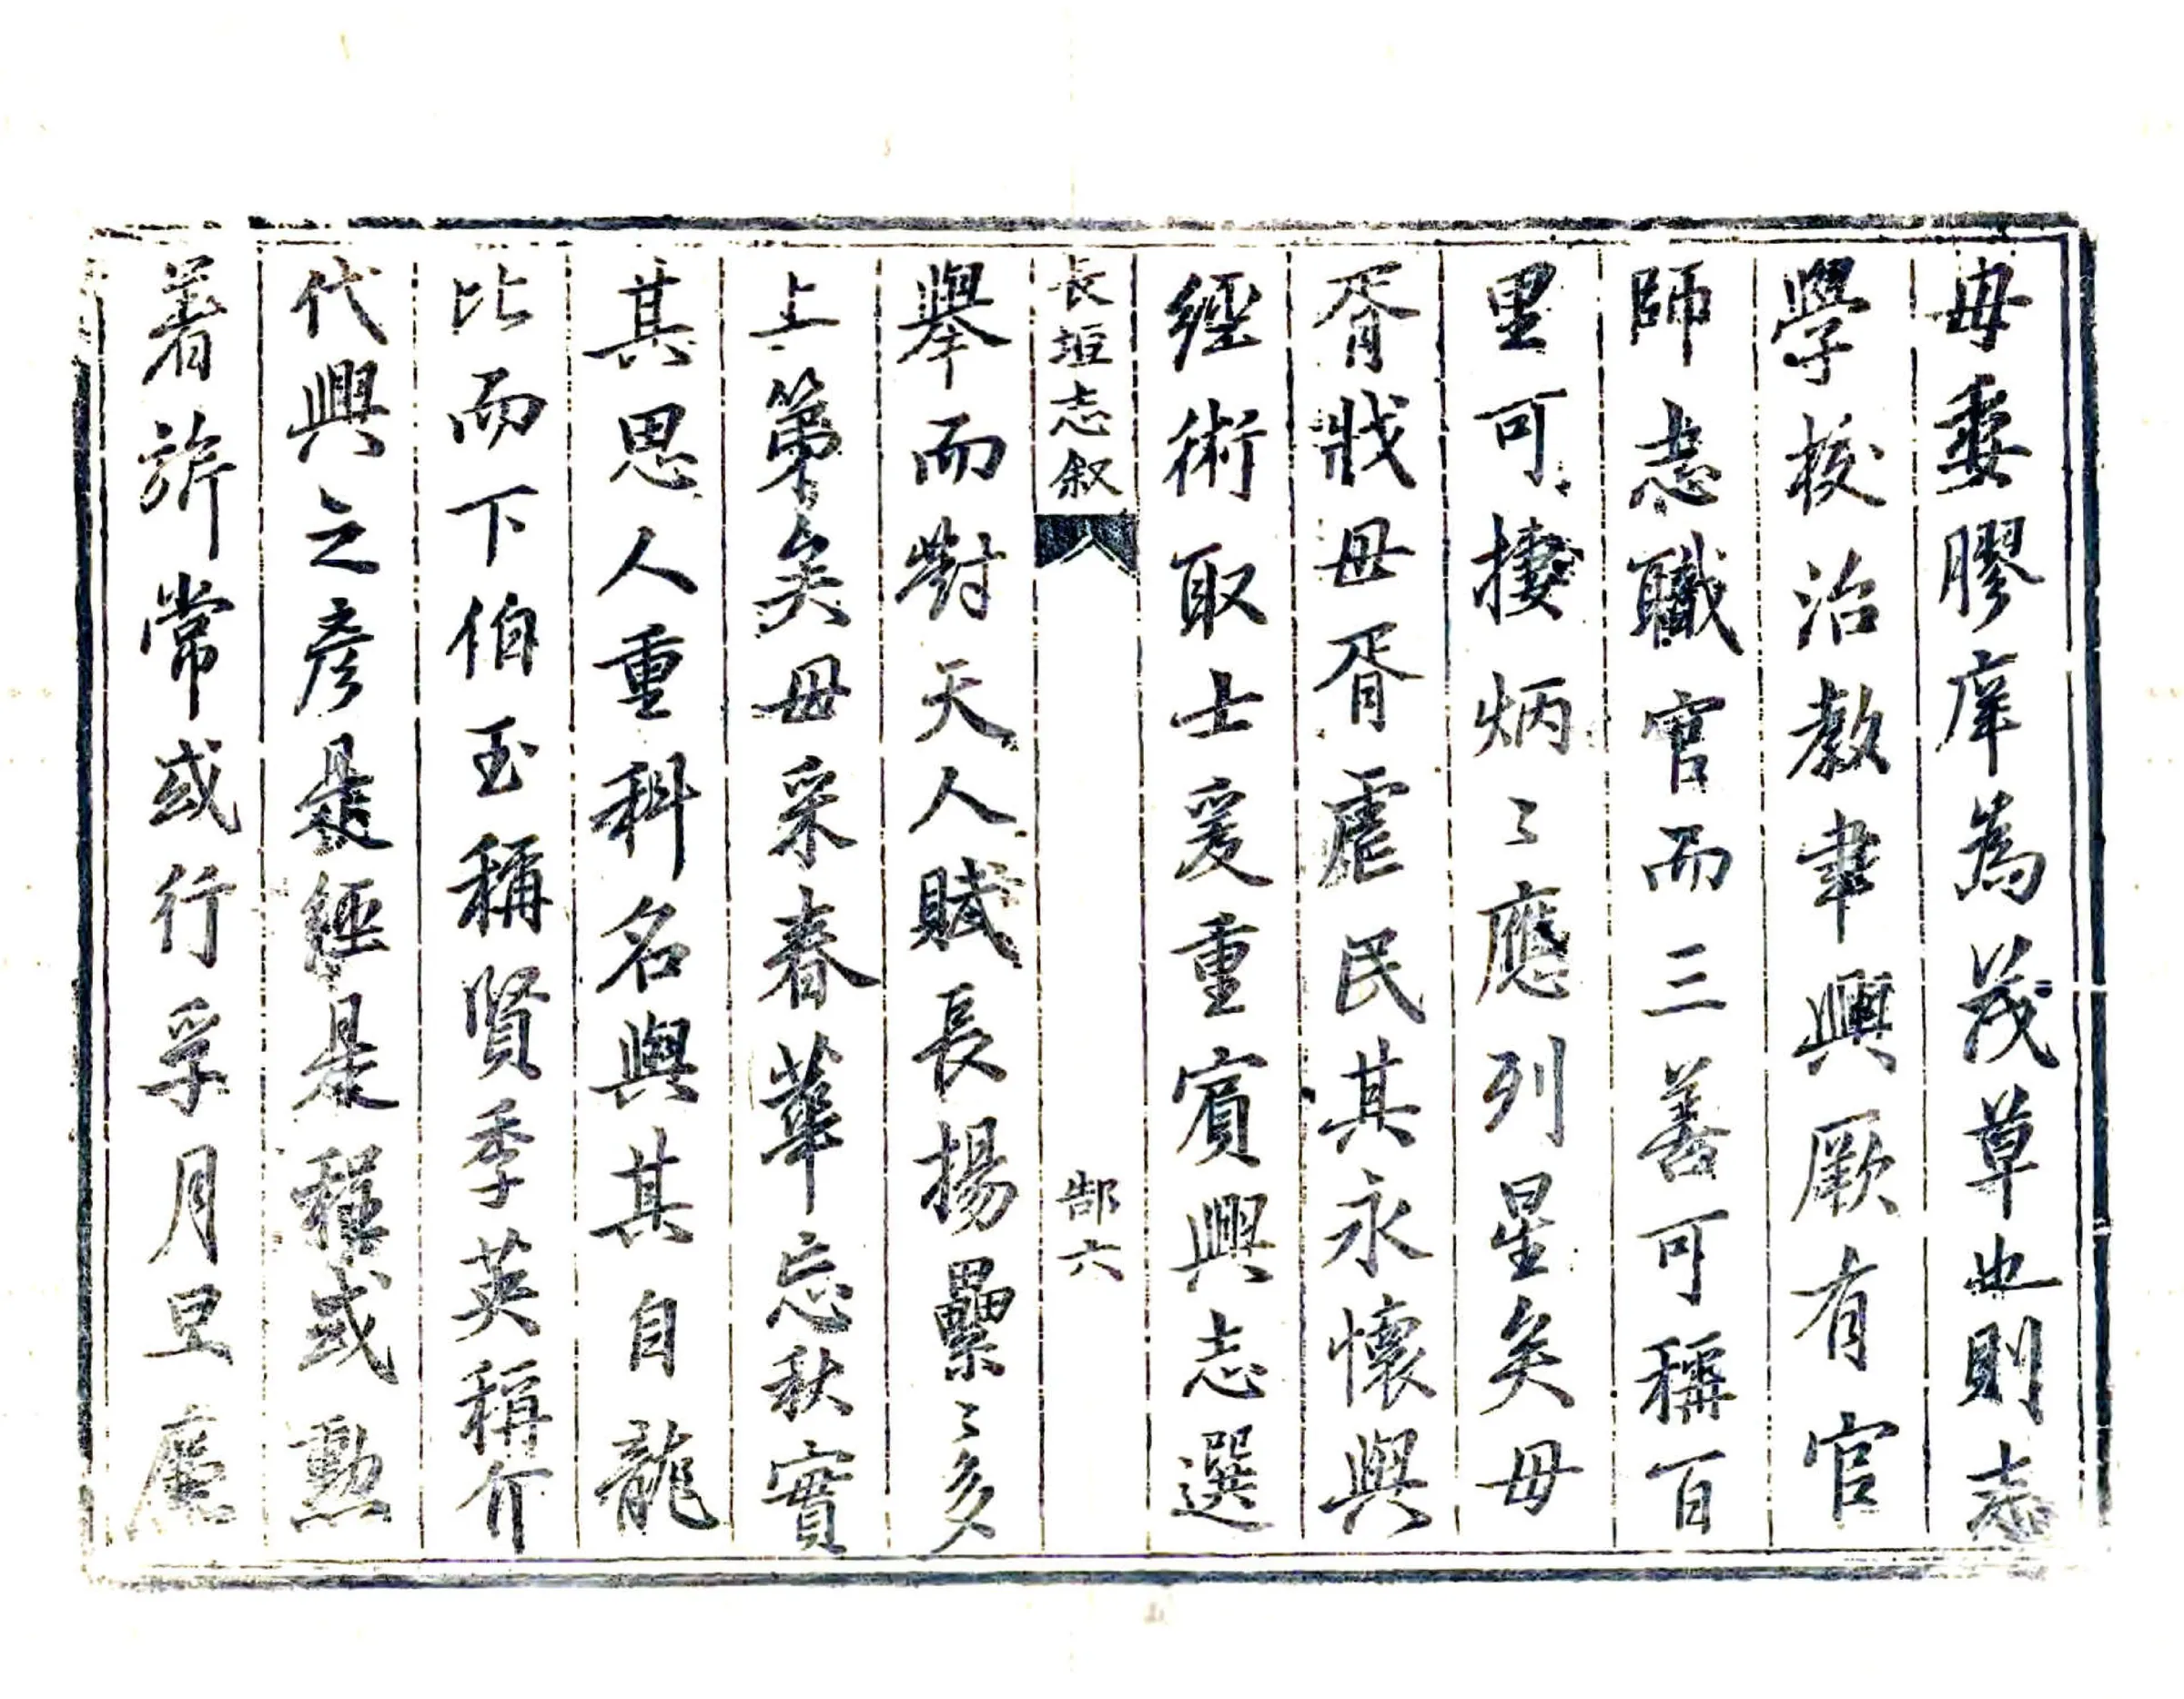 毋委膠庠為茂草也則志
學校治教聿興厥有官
師志職官而三善可稱百
里可捿炳〻應列星矣毋
胥戕毋胥虐民其永懷與
經術取士爰重賓興志選
長垣志叙
郜六
舉而對天人賦長揚纍〻多
上第矣毋采春華忘秋實
其思人重科名與其自龍
比而下伯玉稱賢季英稱介
代興之彥是經是程或勲
著旂常或行孚月旦